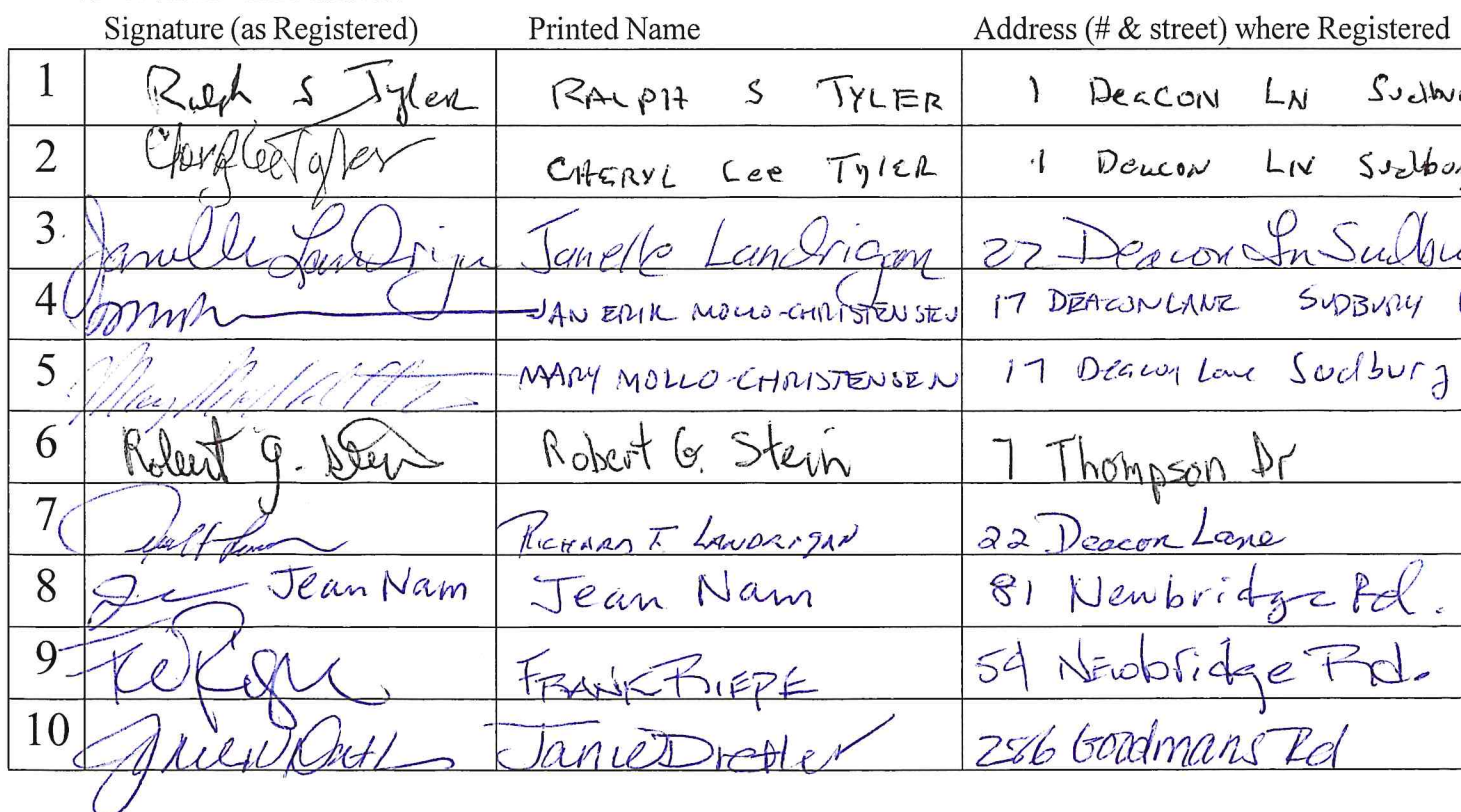 Signature (as Registered) Printed Name Address (# & street) where Registered
1 Ralph S Tyler RALPH S TYLER 1 Deacon LN Sudbu
2 Cheryl Lee Tyler CHERYL Lee TYLER 1 Deacon LN Sudbur
3. Janelle Landrigan Janelle Landrigan 22 Deacon Ln Sudbu
4 JAN ERIK MOLLO-CHRISTENSEN 17 DEACON LANE SUDBURY
5 MARY MOLLO-CHRISTENSEN 17 Deacon Lane Sudbury
6 Robert G. Stein Robert G. Stein 7 Thompson Dr
7 RICHARD T. LANDRIGAN 22 Deacon Lane
8 Jean Nam Jean Nam 81 Newbridge Rd.
9 FRANK RIEPE 54 Newbridge Rd.
10 Janie Dretler 286 Goodmans Rd